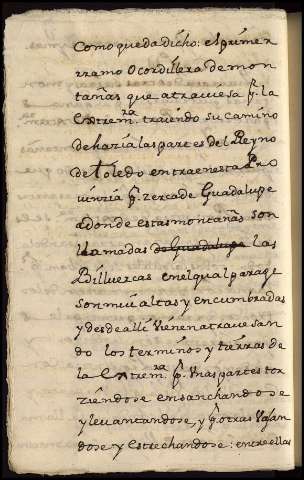 como queda dicho: el primer
rramo o cordillera de mon
tañas que atraviesa pr. la
Extrem.ra trayendo su camino
dehazia las partes del Reyno
de toledo entra en esta Pro
uinzia pr. zerca de Guadalupe
adonde estas montañas son
llamadas de Guadalupe las
Billuercas en el qual parage
son mui altas y encumbradas
y desde alli vienen atravesan
do los terminos y tierras de
la Extrem.ra pr. unas partes tor
ziendose ensanchandose
y levantandose, y pr. otras vajan
dose y estrechandose: entre ellas